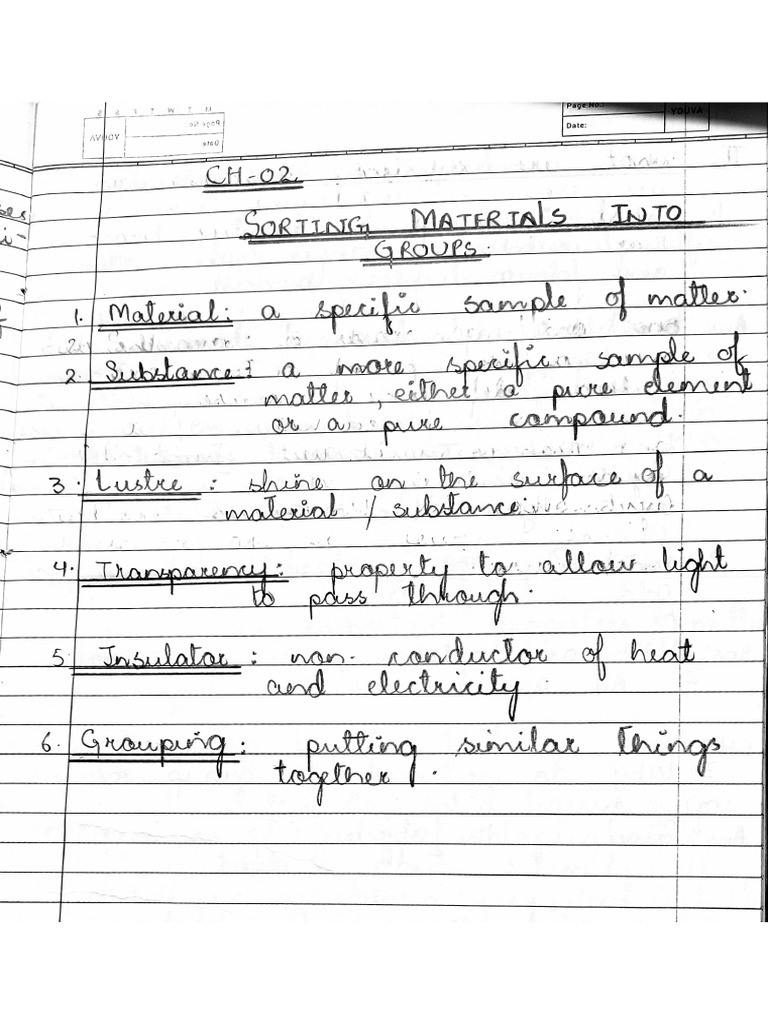 Page No.:
Date:
YOUVA
CH-02.
SORTING MATERIALS INTO
GROUPS.
1. Material: a specific sample of matter.
2.
2. Substance: a more specific sample of
matter, either a pure element
or a pure compound.
3. Lustre : shine on the surface of a
material / substance.
4. Transparency: property to allow light
to pass through.
5. Insulator : non-conductor of heat
and electricity.
6. Grouping : putting similar things
together.